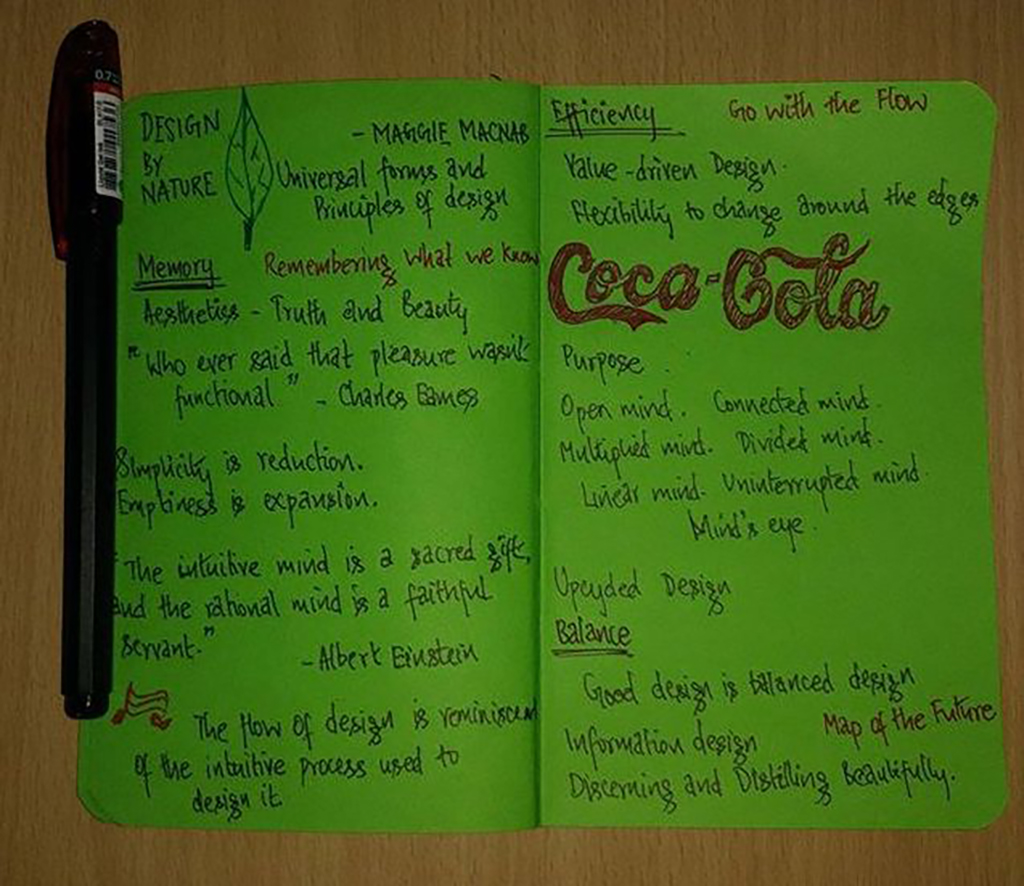 0.7
DESIGN
BY
NATURE
- MAGGIE MACNAB
Universal forms and
Principles of design
Memory Remembering what we know
Aesthetics - Truth and Beauty
"Who ever said that pleasure wasn't
functional" - Charles Eames
Simplicity is reduction.
Emptiness is expansion.
"The intuitive mind is a sacred gift,
and the rational mind is a faithful
servant."
- Albert Einstein
The flow of design is reminiscent
of the intuitive process used to
design it
Efficiency Go with the Flow
Value-driven Design.
Flexibility to change around the edges
Coca-Cola
Purpose.
Open mind. Connected mind.
Multiplied mind. Divided mind.
Linear mind. Uninterrupted mind.
Mind's eye.
Upcycled Design
Balance
Good design is balanced design
Map of the Future
Information design
Discerning and Distilling Beautifully.